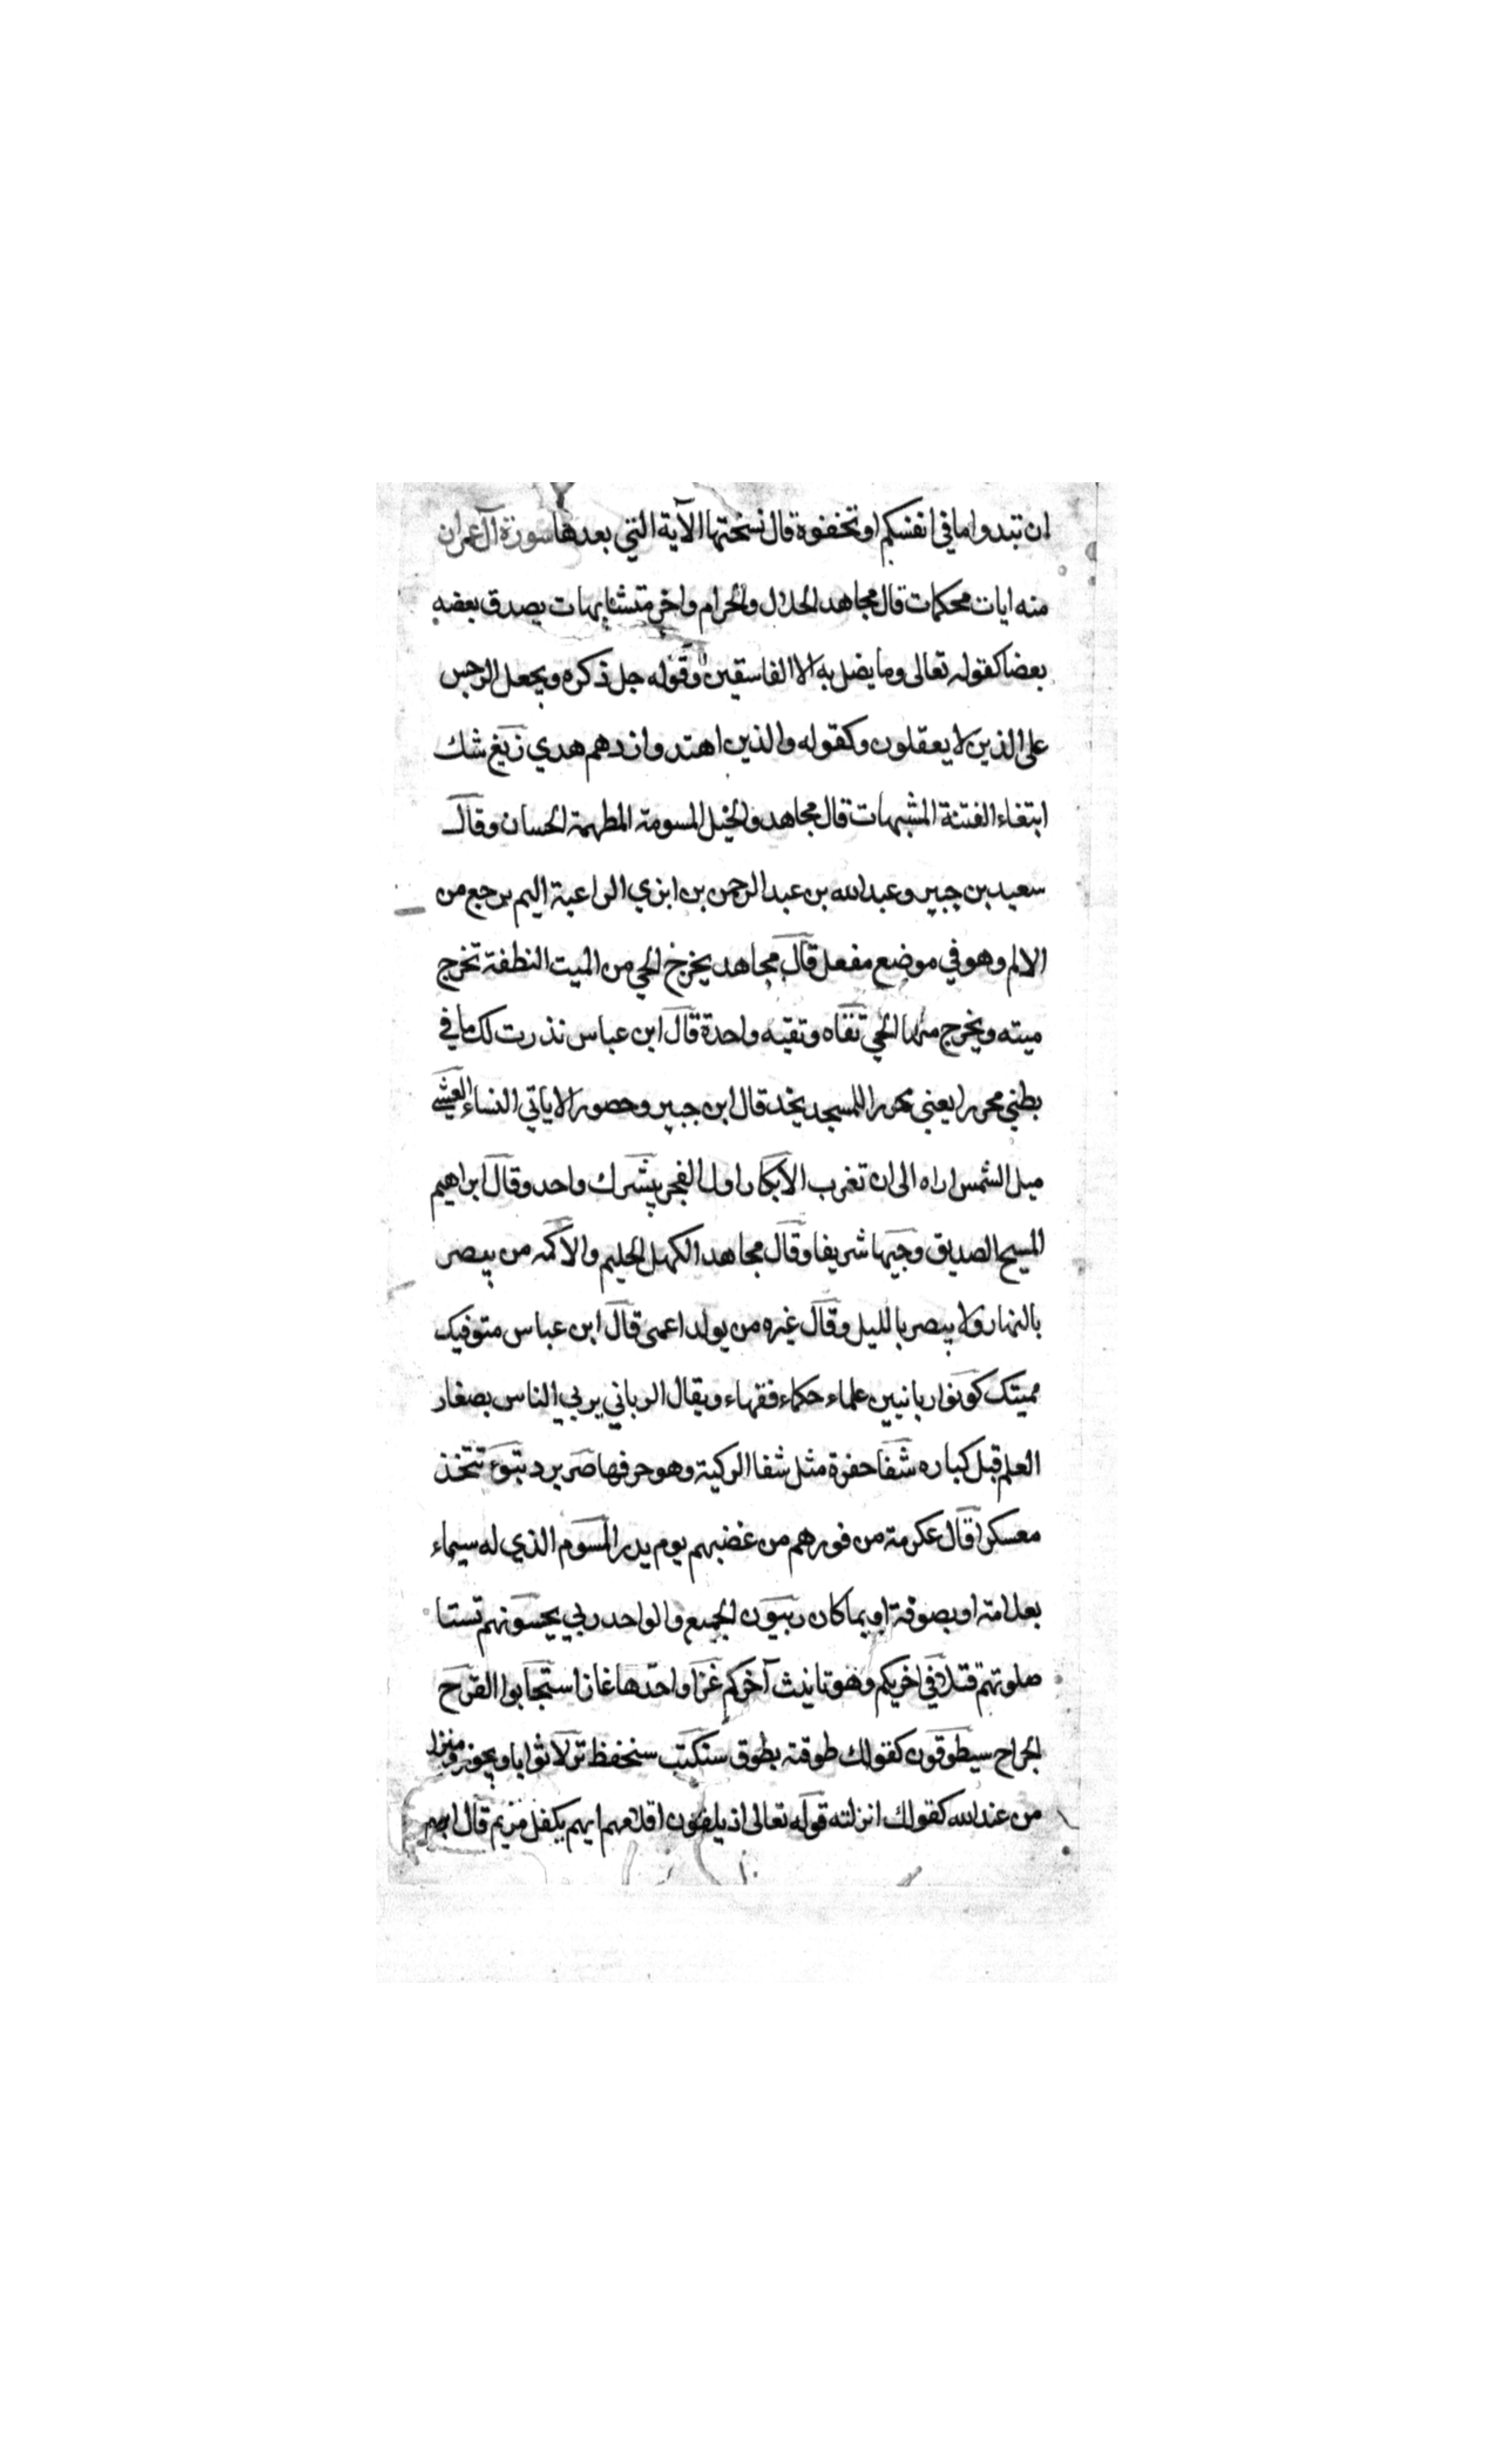 ان تبدوا ما في انفسكم او تخفوه قال نسختها الآية التي بعدها سورة آل عمران
منه ايات محكمات قال مجاهد الحلال والحرام واخر متشابهات يصدق بعضه
بعضا كقوله تعالى وما يضل به الا الفاسقين وقوله جل ذكره ويجعل الرجس
على الذين لا يعقلون وكقوله والذين اهتدوا زدهم هدي زيغ شك
ابتغاء الفتنة المشبهات قال مجاهد والخيل المسومة المطهمة الحسان وقال
سعيد بن جبير وعبد الله بن عبد الرحمن بن ابزي الراعية اليم يرجع من
الالم وهو في موضع مفعل قال مجاهد يخرج الحي من الميت النطفة تخرج
ميته ويخرج منها الحي تقاه وتقيه واحدة قال ابن عباس نذرت لك ما في
بطني محررا يعني محررا للمسجد يخد قال ابن جبير وحصورا لا ياتي النساء العشي
ميل الشمس اراه الى ان تغرب الابكار اول الفجر يبشرك واحد وقال ابراهيم
المسيح الصديق وجيها شريفا وقال مجاهد الكهل الحليم والاكمه من يبصر
بالنهار ولا يبصر بالليل وقال غيره من يولد اعمى قال ابن عباس متوفيك
مميتك كونوا ربانيين علماء حكماء فقهاء ويقال الرباني يربي الناس بصغار
العلم قبل كباره شفا حفرة مثل شفا الركية وهو حرفها صر برد تبوء تتخذ
معسكرا قال عكرمة من فورهم من غضبهم يوم بدر المسوم الذي له سيماء
بعلامته او بصوفة او بما كان ربيون الجميع والواحد ربي يحسونهم تستا
صلونهم قتلا في اخريكم وهو تانيث آخركم غزا واحدها غاز استجابوا القرح
الجراح سيطوقون كقولك طوقته بطوق سنكتب سنحفظ نزلا ثوابا ويجوز ومنزل
من عند الله كقولك انزلته قوله تعالى اذ يلقون اقلامهم ايهم يكفل مريم قال